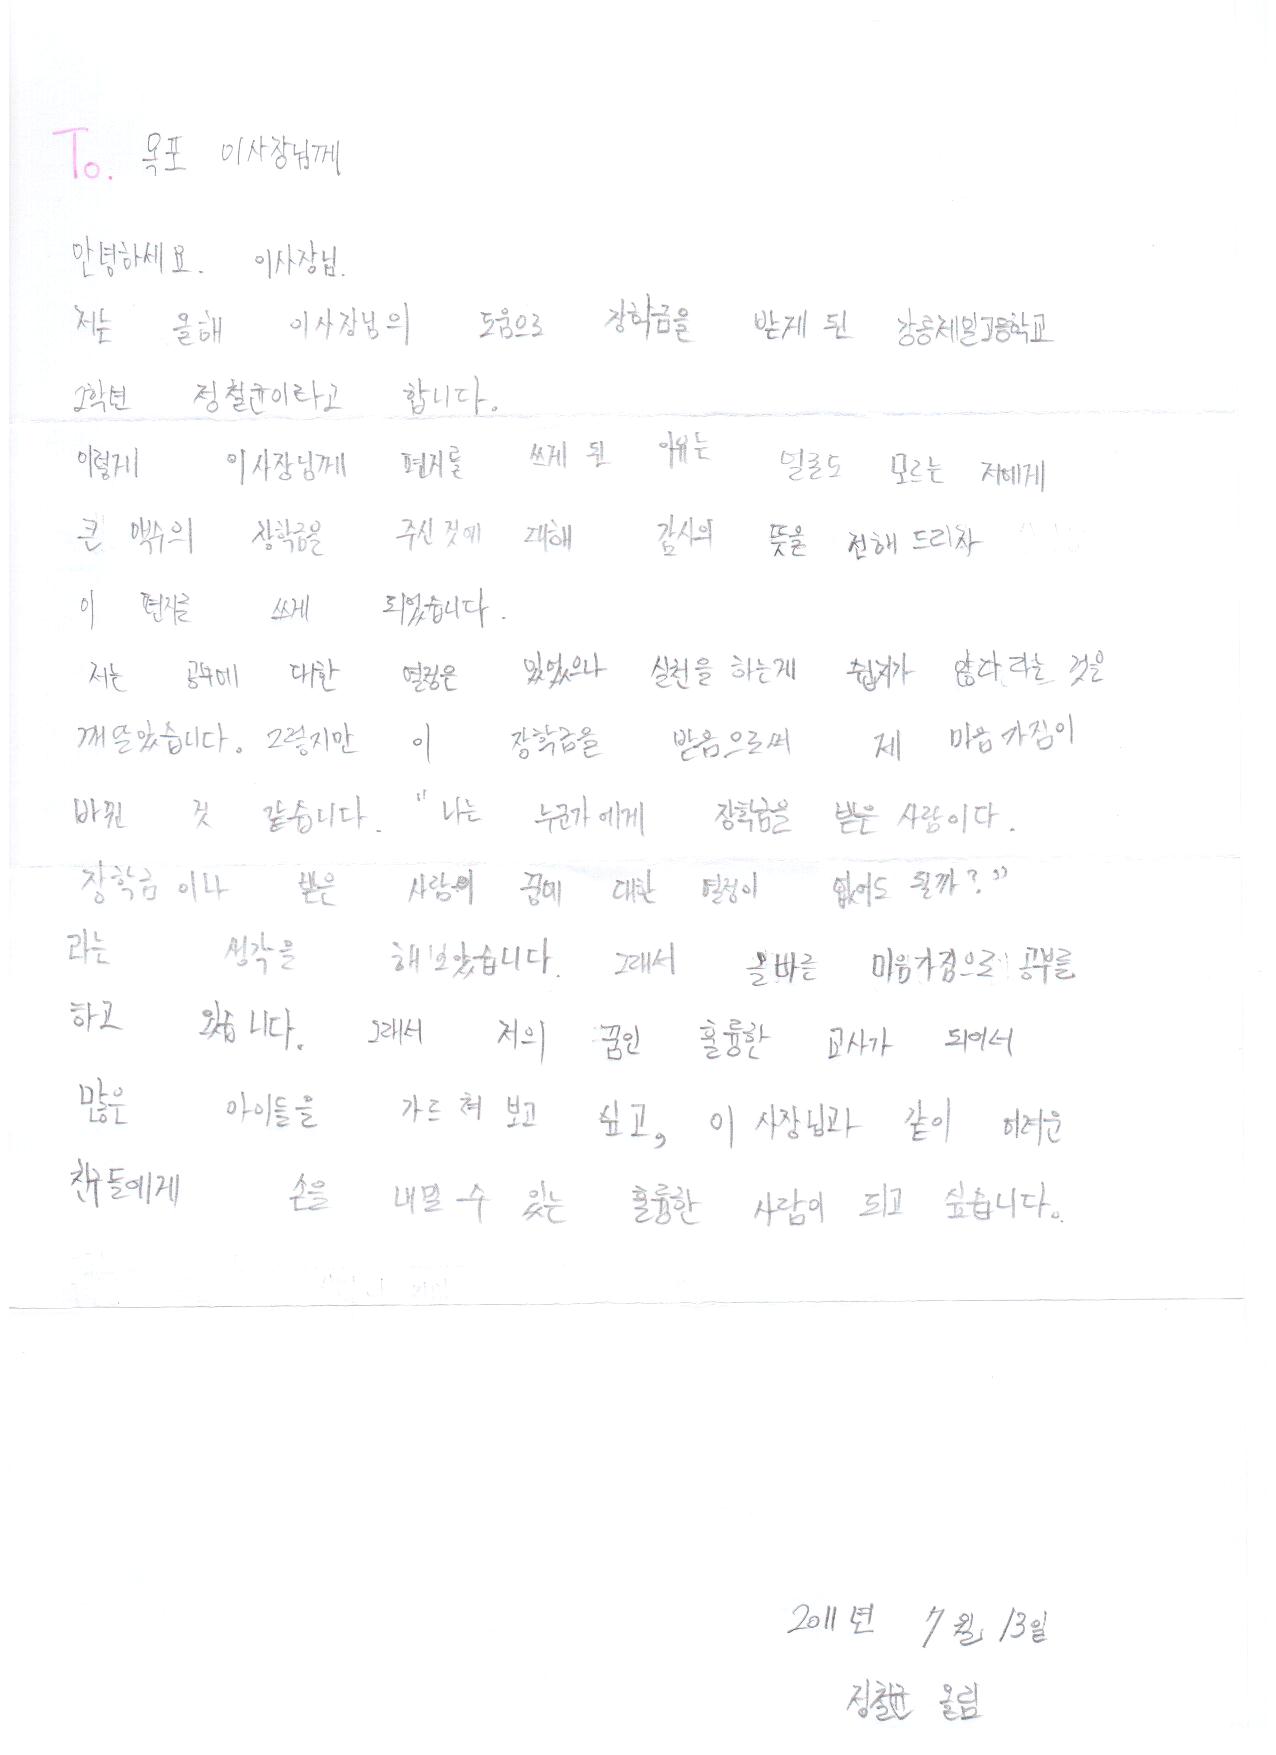 To. 목포 이사장님께
안녕하세요. 이사장님.
저는 올해 이사장님의 도움으로 장학금을 받게 된 강릉제일고등학교
2학년 정철균이라고 합니다.
이렇게 이사장님께 편지를 쓰게 된 이유는 얼굴도 모르는 저에게
큰 액수의 장학금을 주신 것에 대해 감사의 뜻을 전해 드리자
이 편지를 쓰게 되었습니다.
저는 공부에 대한 열정은 있었으나 실천을 하는게 쉽지가 않다라는 것을
깨달았습니다. 그렇지만 이 장학금을 받음으로써 제 마음가짐이
바뀐 것 같습니다. "나는 누군가에게 장학금을 받은 사람이다.
장학금이나 받은 사람의 꿈에 대한 열정이 없어도 될까?"
라는 생각을 해보았습니다. 그래서 올바른 마음가짐으로 공부를
하고 왔습니다. 그래서 저의 꿈인 훌륭한 교사가 되어서
많은 아이들을 가르쳐 보고 싶고, 이사장님과 같이 어려운
친구들에게 손을 내밀 수 있는 훌륭한 사람이 되고 싶습니다.
2011년 7월 13일
정철균 올림